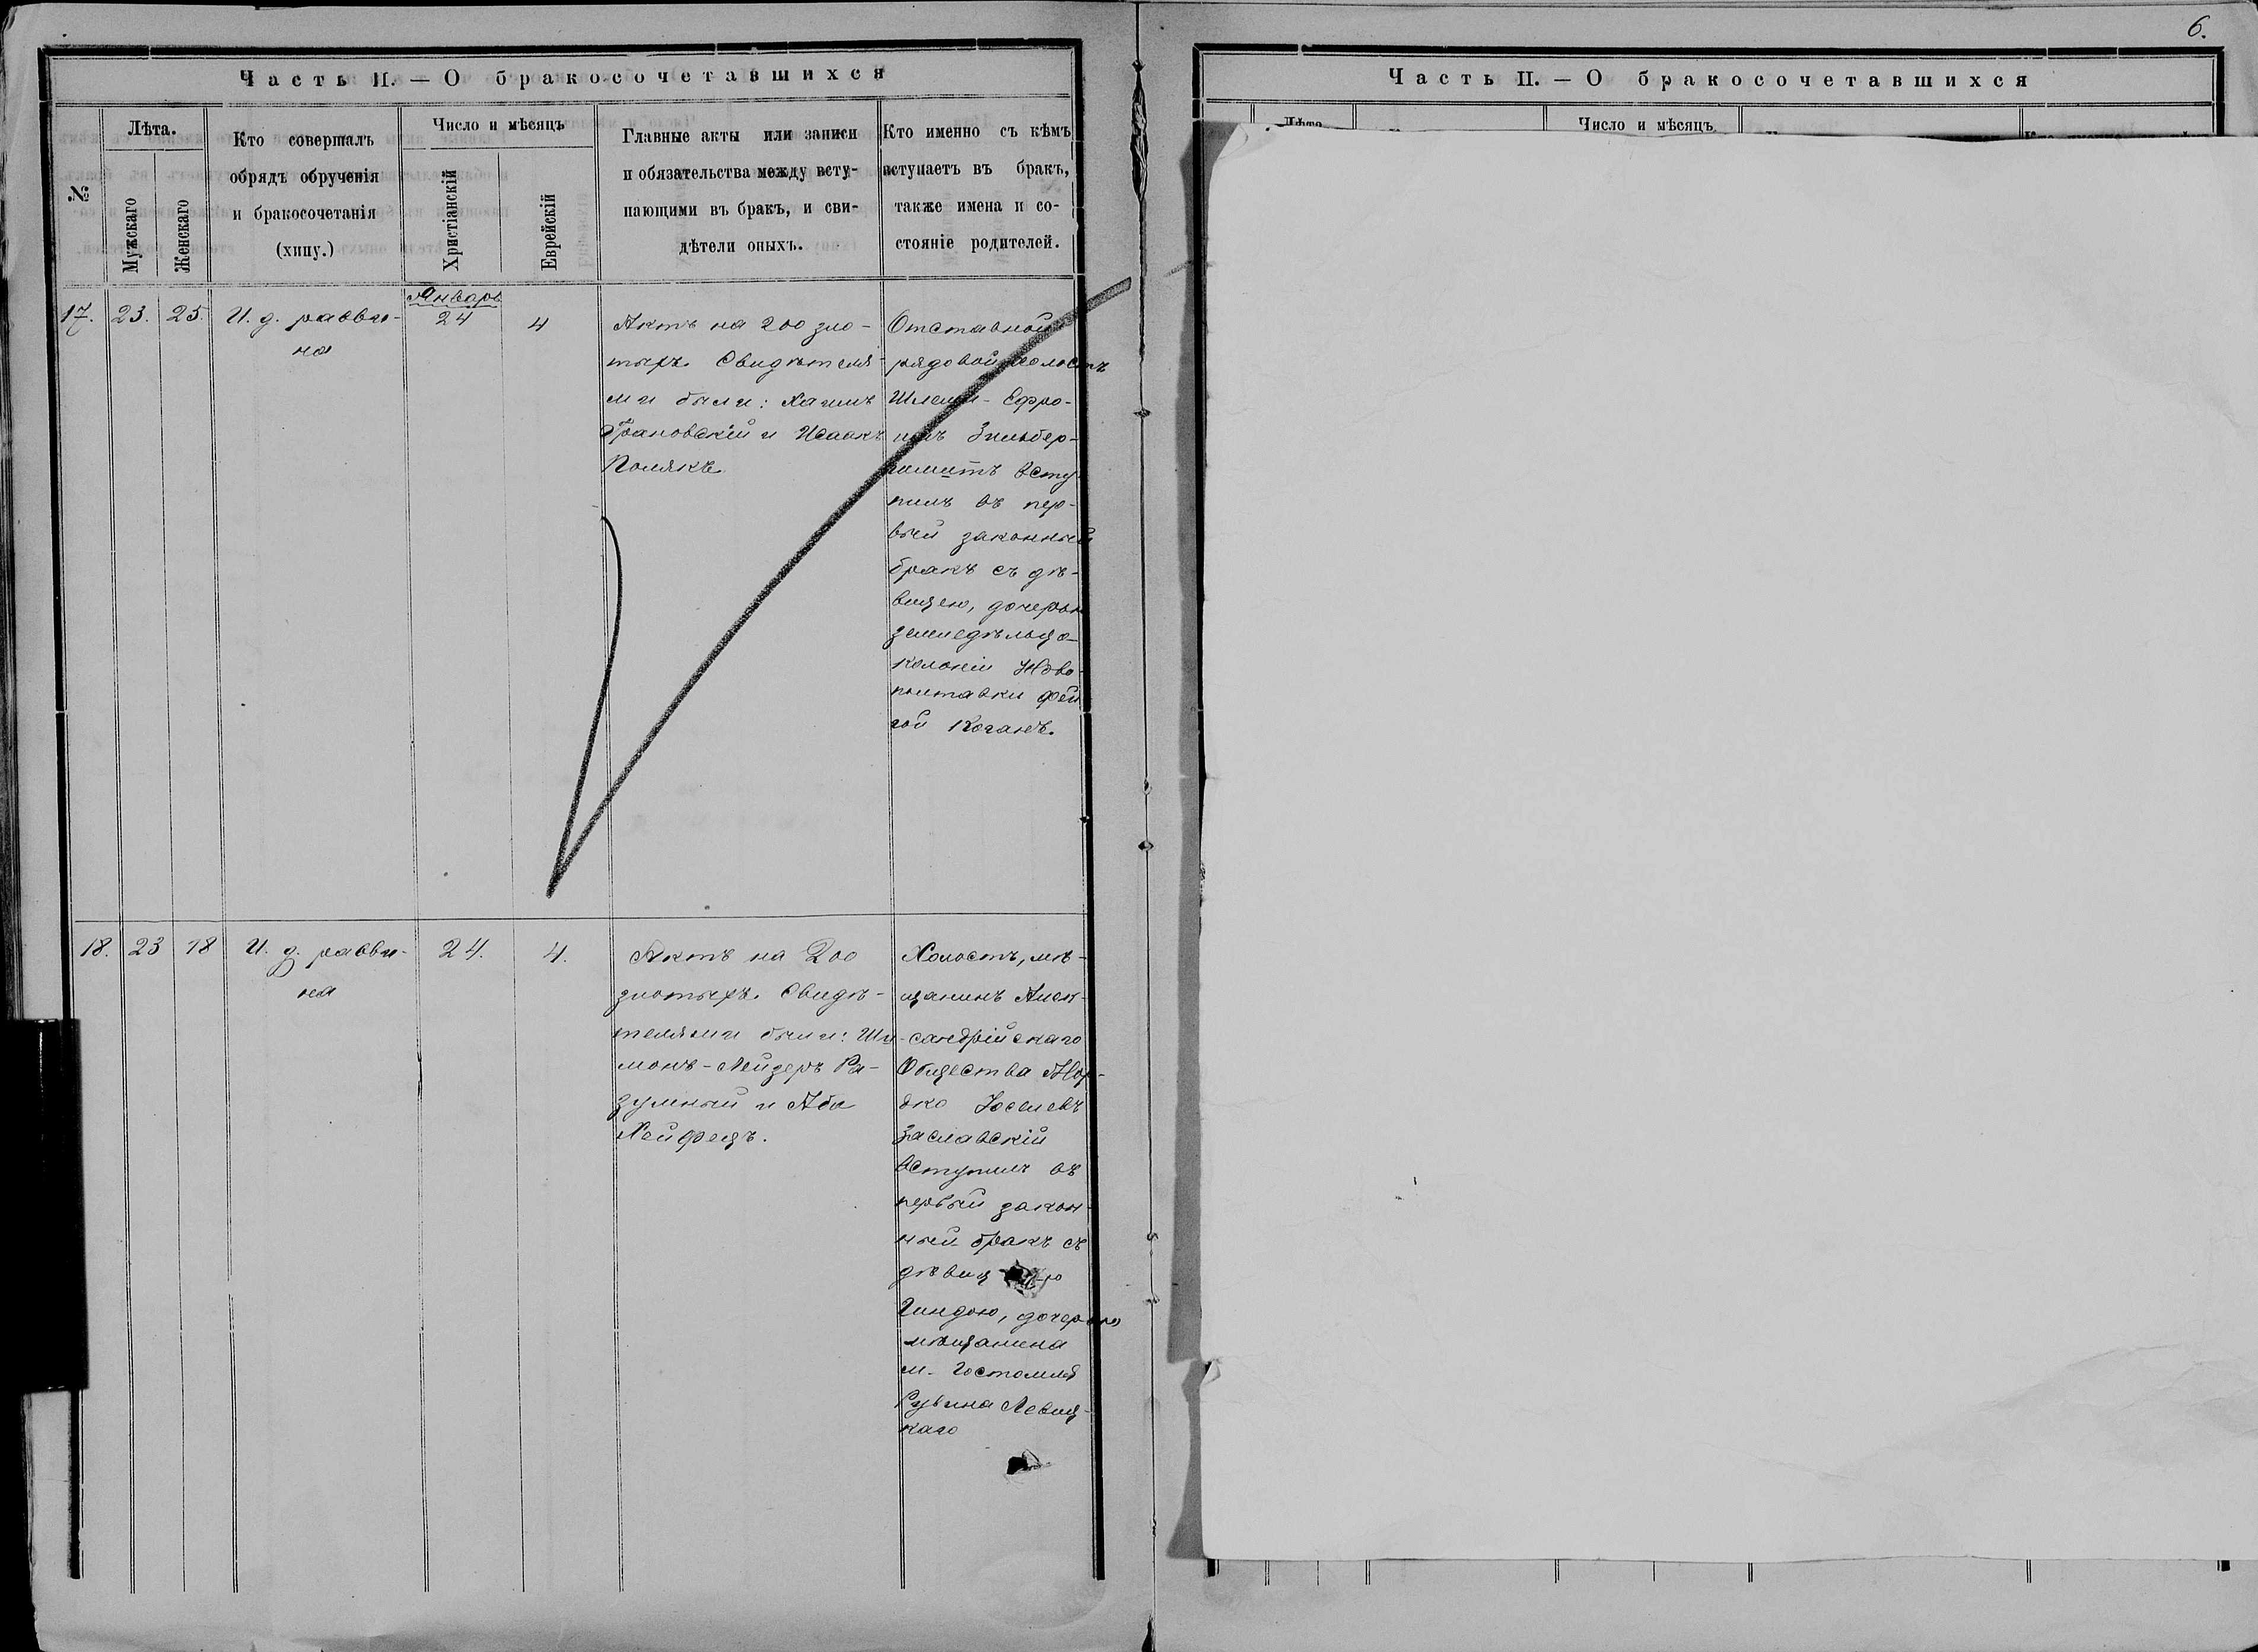 6.
Часть II. — О бракосочетавшихся
№
Лѣта.
Мужскаго
Женскаго
Кто совершалъ
обрядъ обрученія
и бракосочетанія
(хипу.)
Число и мѣсяцъ
Христіанскій
Еврейскій
Главные акты или записи
и обязательства между всту-
пающими въ бракъ, и сви-
дѣтели оныхъ.
Кто именно съ кѣмъ
вступаетъ въ бракъ,
также имена и со-
стояніе родителей.
17.
23.
25.
И. д. равви-
на
Январь
24
4
Актъ на 200 зло-
тыхъ. Свидѣтеля-
ми были: Хаимъ
Грановскій и Исаакъ
Полякъ.
Отставной
рядовой холостъ
Шлема - Ефро-
имъ Зильбер-
всту-
пилъ въ пер-
вый законный
бракъ съ дѣ-
вицею, дочерью
земледѣльца
колоніи Ново-
полтавки Фей-
гой Коганъ.
18.
23
18
И. д. равви-
на
24.
4.
Актъ на 200
злотыхъ. Свидѣ-
телями были: Ши-
монъ-Лейзеръ Ра-
зумный и Аба
Хейфецъ.
Холостъ, мѣ-
щанинъ Алек-
сандрійскаго
Общества Мор-
дко Іоселевъ
Заславскій
вступилъ въ
первый закон-
ный бракъ съ
дѣвиц
Гиндою, дочерью
мѣщанина
м. Гостомля
Рувина Левиц-
каго
Часть II. — О бракосочетавшихся
Лѣта
Число и мѣсяцъ